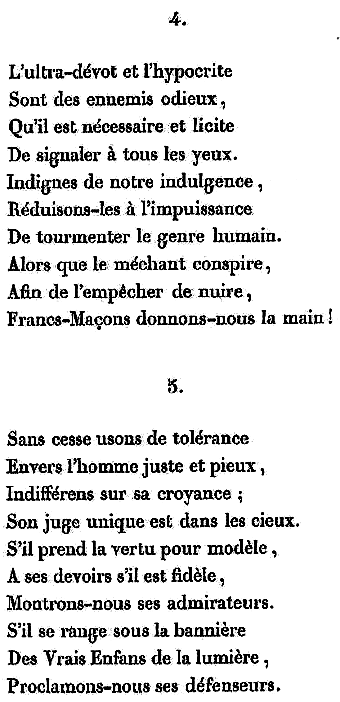 4.
L'ultra-dévot et l'hypocrite
Sont des ennemis odieux,
Qu'il est nécessaire et licite
De signaler à tous les yeux.
Indignes de notre indulgence,
Réduisons-les à l'impuissance
De tourmenter le genre humain.
Alors que le méchant conspire,
Afin de l'empêcher de nuire,
Francs-Maçons donnons-nous la main!
5.
Sans cesse usons de tolérance
Envers l'homme juste et pieux,
Indifférens sur sa croyance;
Son juge unique est dans les cieux.
S'il prend la vertu pour modèle,
A ses devoirs s'il est fidèle,
Montrons-nous ses admirateurs.
S'il se range sous la bannière
Des Vrais Enfans de la lumière,
Proclamons-nous ses défenseurs.